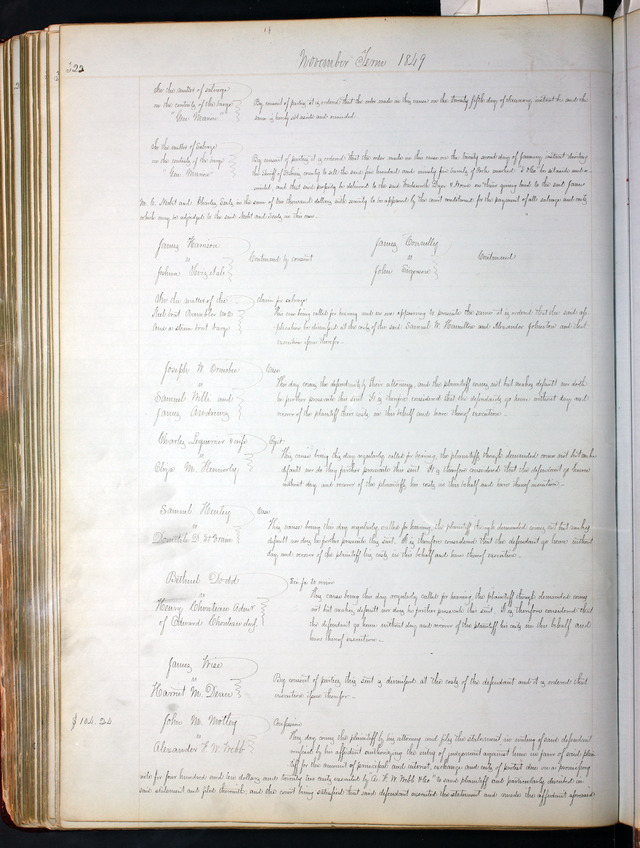 322
November Term 1849
In the matter of salvage
on the contents of the barge
"Gen. Mason"
By consent of parties it is ordered that the order made in this cause on the twenty fifth day of January, instant be and the
same is hereby set aside and annulled.
In the matter of salvage
on the contents of the barge
"Gen Mason"
By consent of parties it is ordered that the order made in this cause on the twenty second day of January instant directing
the Sheriff of county to sell the said four hundred and seventy five be set aside and
and that said property be delivered to the said on their giving bond to the said James
and Charles in the sum of ten thousand dollars with security to be approved by the court conditioned for the payment of all salvage and costs
which may be adjudged to the said and in this case.
James Harrison
vs
Joshua
Continued by consent
James Connelly
vs
John Ferguson
Continued
In the matter of the
Keel boat December No 2
and a steam boat barge
Claim for salvage
This case being called for hearing and no one appearing to prosecute the same it is ordered that the said
application be dismissed at the costs of the said Samuel W. Hamilton and Alexander Johnston and that
execution issue therefor.
Joseph W. Ormsbee
vs
Samuel Wells and
James Andrews
Case
This day come the defendants by their attorney, and the plaintiff comes not but makes default nor doth
he further prosecute this suit. It is therefore considered that the defendants go hence without day and
recover of the plaintiff their costs in this behalf and have thereof execution.
Charles & wife
vs
Eliza M.
Ejct.
This cause being this day regularly called for hearing, the plaintiffs though demanded come not but make
default nor do they further prosecute this suit. It is therefore considered that the defendant go hence
without day and recover of the plaintiffs her costs in this behalf and have thereof execution.
Samuel Hinley
vs
D.
Case
This cause being this day regularly called for hearing, the plaintiff though demanded comes not but makes
default nor does he further prosecute this suit. It is therefore considered that the defendant go hence without
day and recover of the plaintiff his costs in this behalf and have thereof execution.
Bethuel Dodd
vs
Henry Chouteau Admr.
of Edmund Chouteau decd.
Sci fa to revive
This cause being this day regularly called for hearing, the plaintiff though demanded comes
not but makes default nor does he further prosecute this suit. It is therefore considered that
the defendant go hence without day and recover of the plaintiff his costs in this behalf and
have thereof execution.
James Wise
vs
Harriet M. Dean
By consent of parties this suit is dismissed at the costs of the defendant and it is ordered that
execution issue therefor.
$ 104.24
John M. Motley
vs
Alexander F. W. Webb
Confession
This day comes the plaintiff by his attorney and files the statement in writing of said defendant
verified by his affidavit authorizing the entry of judgment against him in favor of said plain
tiff for the amount of principal and interest, exchange and costs of protest due on a promissory
note for four hundred and ten dollars and twenty ten cents executed by A. F. W. Webb to said plaintiff and particularly described in
said statement and filed therewith; and the court being satisfied that said defendant executed the statement and made the affidavit aforesaid